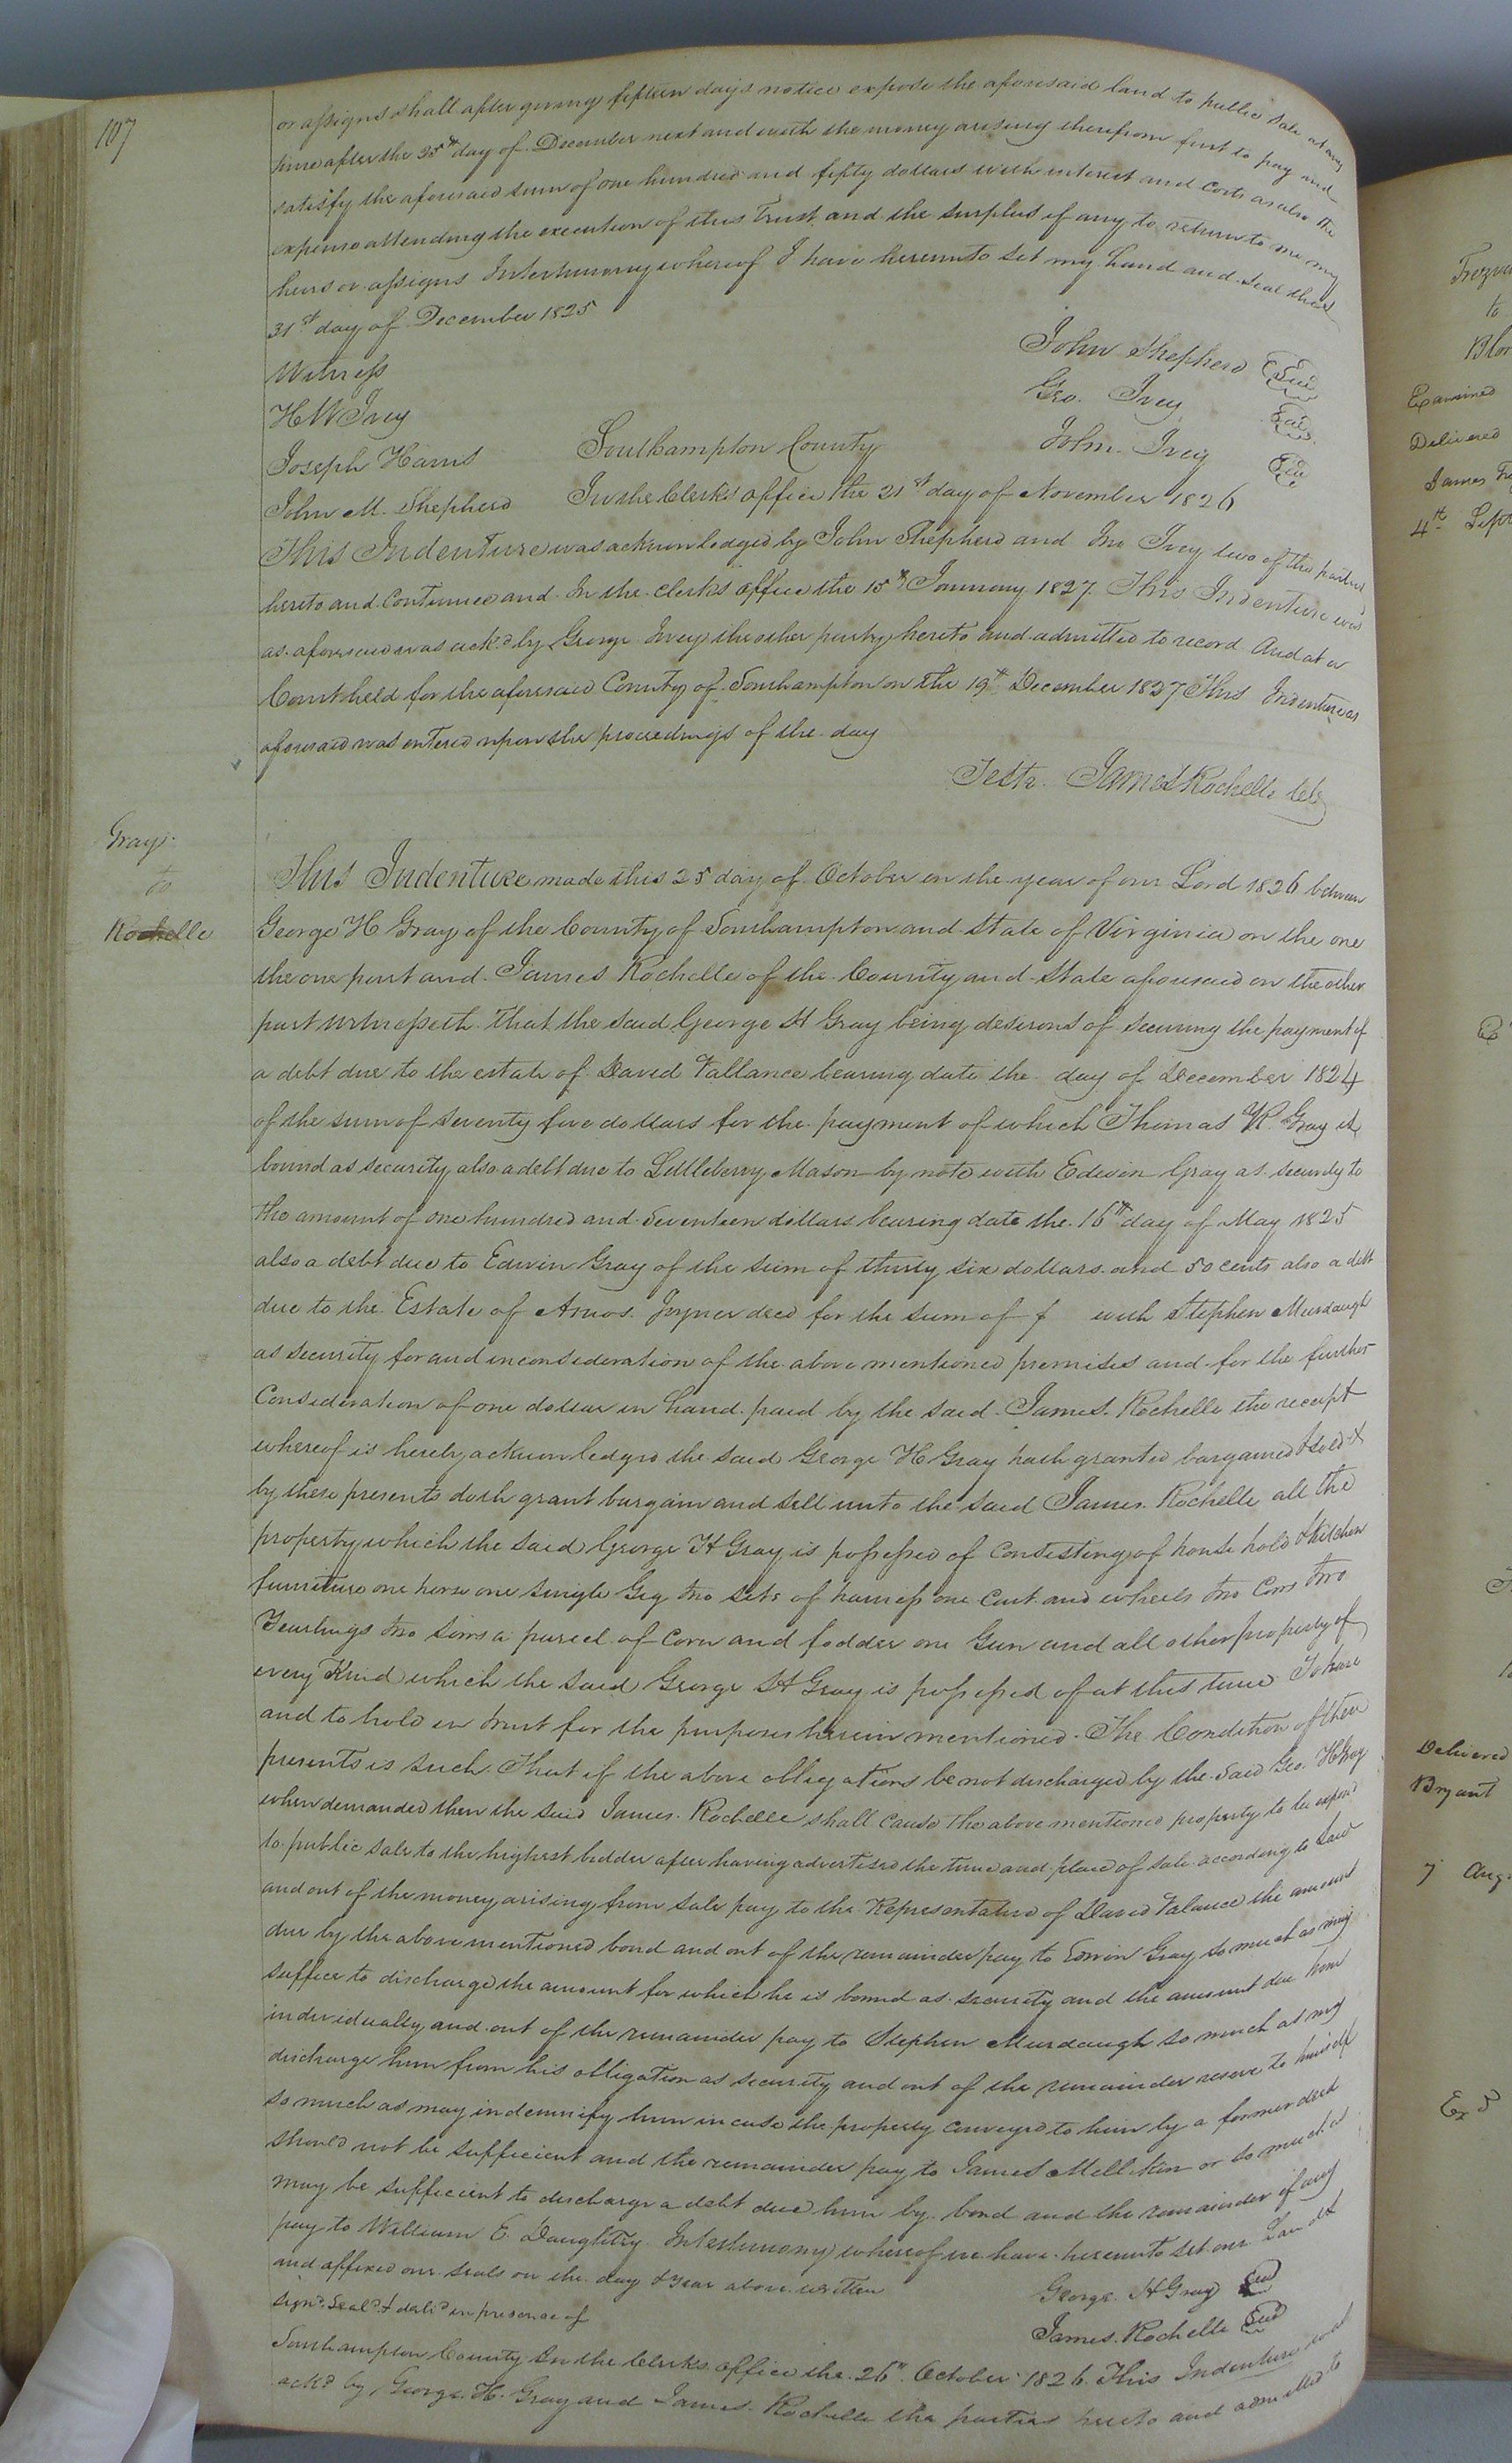 107
or assigns shall after giving fifteen days notice expose the aforesaid land to public sale at any
time after the 25th day of December next and with the money arising therefrom first to pay and
satisfy the aforesaid sum of one hundred and fifty dollars with interest and Costs as also the
expense attending the execution of this Trust and the surplus if any to return to me my
heirs or assigns In testimony whereof I have hereunto set my hand and seal this
31st day of December 1825
Witness
John Shepherd Seal
H W Ivey
Geo. Ivey Seal
Joseph Harris
Southampton County
John Ivey Seal
John M. Shepherd
In the Clerks office the 21st day of November 1826
This Indenture was acknowledged by John Shepherd and Jno Ivey two of the parties
hereto and Continued and In the clerks office the 15th January 1827 This Indenture was
as aforesaid was ackd by George Ivey the other party hereto and admitted to record And at a
Court held for the aforesaid County of Southampton on the 19th December 1827 This Indenture as
aforesaid was entered upon the proceedings of the day
Teste James Rochelle clk
Gray
to
Rochelle
This Indenture made this 25 day of October in the year of our Lord 1826 between
George H Gray of the County of Southampton and State of Virginia on the one
the one part and James Rochelle of the County and State aforesaid on the other
part Witnesseth That the said George H Gray being desirous of securing the payment of
a debt due to the estate of David Vallance bearing date the day of December 1824
of the sum of seventy five dollars for the payment of which Thomas R Gray is
bound as security also a debt due to Littleberry Mason by note with Edwin Gray as security to
the amount of one hundred and seventeen dollars bearing date the 16th day of May 1825
also a debt due to Edwin Gray of the sum of thirty six dollars and 50 cents also a debt
due to the Estate of Amos Joyner decd for the sum of $ with Stephen Murdaugh
as security for and in consideration of the above mentioned premises and for the further
Consideration of one dollar in hand paid by the said James Rochelle the receipt
whereof is hereby acknowledged the said George H Gray hath granted bargained & sold &
by these presents doth grant bargain and sell unto the said James Rochelle all the
property which the said George H Gray is possessed of Consisting of house hold & kitchen
furniture one horse one single Gig two sets of harness one Cart and wheels two Cows two
Yearlings two sows a parcel of Corn and fodder one Gun and all other property of
every Kind which the said George H Gray is possessed of at this time To have
and to hold in trust for the purposes herein mentioned. The Condition of these
presents is such That if the above obligations be not discharged by the said Geo. H Gray
when demanded then the said James Rochelle shall cause the above mentioned property to be exposed
to public sale to the highest bidder after having advertised the time and place of sale according to Law
and out of the money arising from sale pay to the Representative of David Valance the amount
due by the above mentioned bond and out of the remainder pay to Edwin Gray so much as may
suffice to discharge the amount for which he is bound as security and the amount due him
individually and out of the remainder pay to Stephen Murdaugh so much as may
discharge him from his obligation as security and out of the remainder reserve to himself
so much as may indemnify him in case the property conveyed to him by a former deed
should not be sufficient and the remainder pay to James Millikin or so much as
may be sufficient to discharge a debt due him by bond and the remainder if any
pay to William E. Daughtry In testimony whereof we have hereunto set our hands
and affixed our seals on the day & year above written
George H Gray Seal
Signd Seald & delid in presence of
James Rochelle Seal
Southampton County In the Clerks office the 26th October 1826 This Indenture was
ackd by George H. Gray and James Rochelle the parties hereto and admitted to
to
Examined
Delivered
4th Sept
Delivered
Bryant
7 Aug.